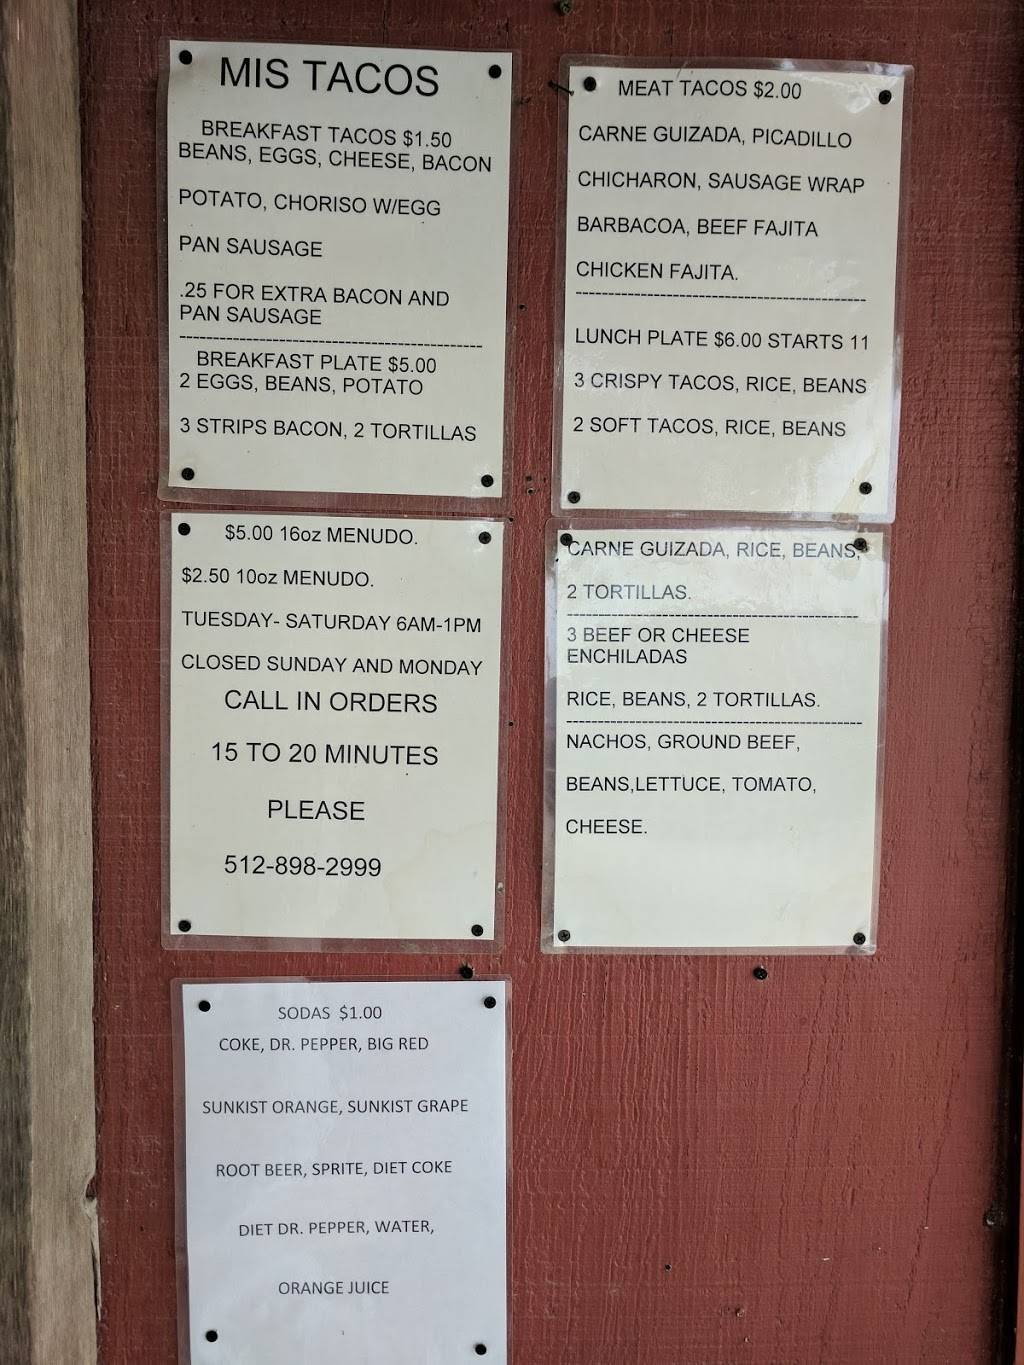 MIS TACOS
BREAKFAST TACOS $1.50
BEANS, EGGS, CHEESE, BACON
POTATO, CHORISO W/EGG
PAN SAUSAGE
.25 FOR EXTRA BACON AND
PAN SAUSAGE
--------------------------------------------------
BREAKFAST PLATE $5.00
2 EGGS, BEANS, POTATO
3 STRIPS BACON, 2 TORTILLAS
MEAT TACOS $2.00
CARNE GUIZADA, PICADILLO
CHICHARON, SAUSAGE WRAP
BARBACOA, BEEF FAJITA
CHICKEN FAJITA.
--------------------------------------------------
LUNCH PLATE $6.00 STARTS 11
3 CRISPY TACOS, RICE, BEANS
2 SOFT TACOS, RICE, BEANS
$5.00 16oz MENUDO.
$2.50 10oz MENUDO.
TUESDAY- SATURDAY 6AM-1PM
CLOSED SUNDAY AND MONDAY
CALL IN ORDERS
15 TO 20 MINUTES
PLEASE
512-898-2999
CARNE GUIZADA, RICE, BEANS,
2 TORTILLAS.
--------------------------------------------------
3 BEEF OR CHEESE
ENCHILADAS
RICE, BEANS, 2 TORTILLAS.
--------------------------------------------------
NACHOS, GROUND BEEF,
BEANS,LETTUCE, TOMATO,
CHEESE.
SODAS $1.00
COKE, DR. PEPPER, BIG RED
SUNKIST ORANGE, SUNKIST GRAPE
ROOT BEER, SPRITE, DIET COKE
DIET DR. PEPPER, WATER,
ORANGE JUICE